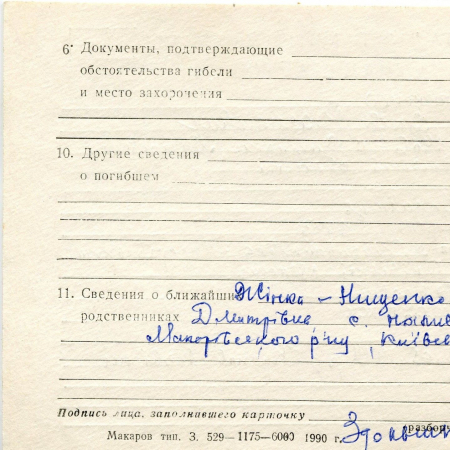 6. Документы, подтверждающие
обстоятельства гибели
и место захоронения
10. Другие сведения
о погибшем
11. Сведения о ближайши Жінка – Нищенко
родственниках Дмитрівна с.
Макарівського р-ну, Київсь
Подпись лица, заполнившего карточку
(разбор
Макаров тип. З. 529—1175—6000 1990 г.